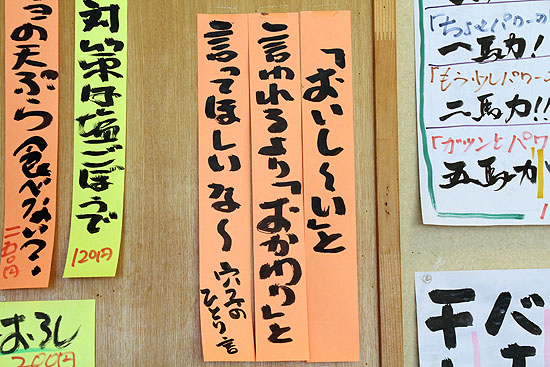 「おいし〜い」と
言われるより「おかわり」と
言ってほしいな〜 穴子のひとり言
対策は塩ごぼうで
120円
の天ぷら食べない?・
二五〇円
おろし
200円
「ちょっとパワー
一馬力!
「もう少しパワー
二馬力!!
「ガツンとパワ
五馬力
バ
干